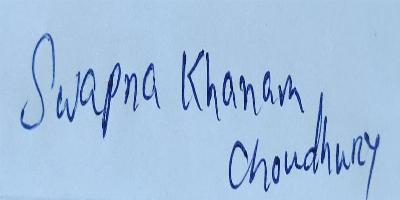 Swapna Khanam
Choudhury